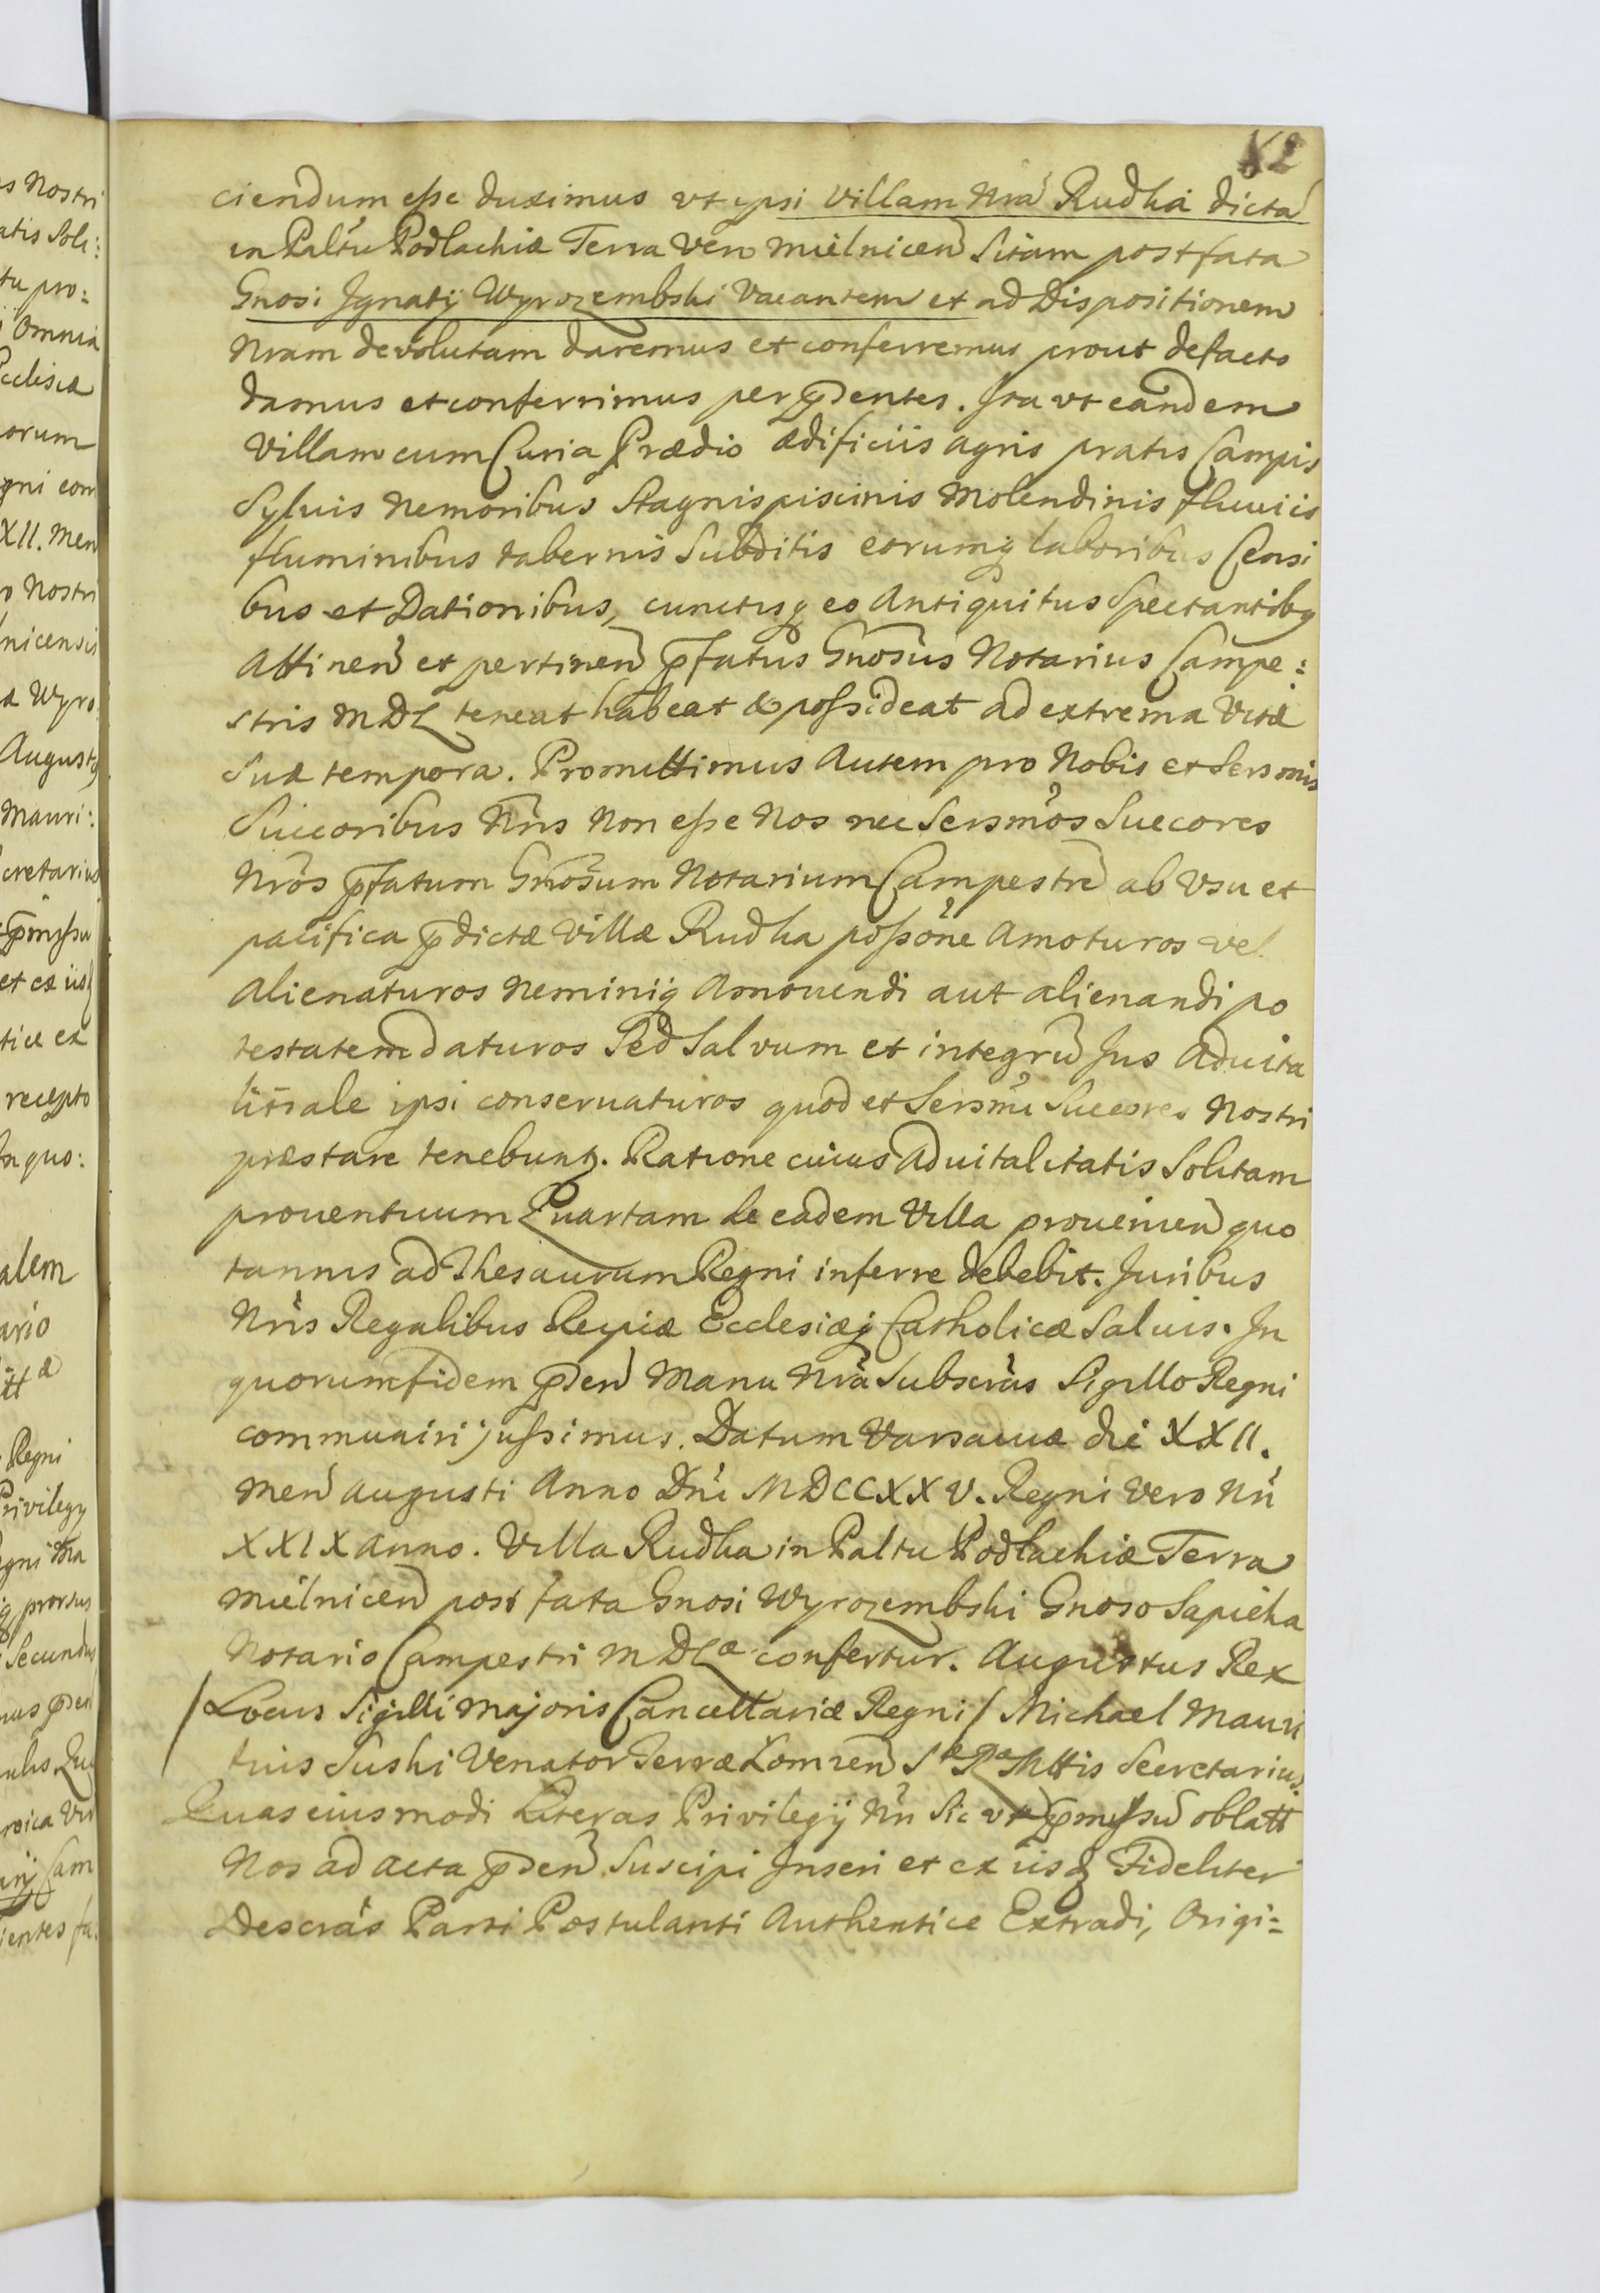 82
ciendum esse duximus vt ipsi Villam Nrã Rudka dictã
in Palttu Podlachiæ Terra Vero Mielnicen̄ Sitam post fata
Gnosi Jgnatij Wyrozembski Vacantem et ad Dispositionem
Nram devolutam daremus et conferremus prout defacto
damus et conferrimus per p̄dentes. Jta vt eandem
Villam cum Curia Prædio ædificiis agris pratis Campis
Syluis Nemoribus Stagnis piscinis Molendinis fluuiis
fluminibus tabernis Subditis eorumq laboribus Censi
bus et Dationibus, cunctisq eo Antiquitus Spectantibq
Attinen̄ et pertinen̄ p̄fatus Gnosus Notarius Campe:
stris MDL teneat habeat & possideat ad extrema Vitæ
Suæ tempora. Promittimus Autem pro Nobis et Sersmis
Succoribus Nris Non esse Nos nec Sersmos Succores
Nros p̄fatum Gnosum Notarium Campestrē ab Vsu et
pacifica p̄dictæ Villæ Rudka possōne Amoturos vel
Alienaturos Neminiq Amouendi aut alienandi po
testatem daturos Sed Salvum et integrū Jus Aduita
litiale ipsi conseruaturos quod et Sersmi Succores Nostri
præstare tenebunt. Ratione cuius Aduitalitatis Solitam
prouentuum Quartam de eadem Villa prouenien̄ quo
tannis ad Thesaurum Regni inferre debebit. Juribus
Nris Regalibus Reipiæ Ecclesiæq Catholicæ Saluis. Jn
quorum fidem p̄den̄ Manu Nrã Subscrãs Sigillo Regni
communiri jussimus. Datum Varsauiæ die XXII.
Men̄ Augusti Anno Dni MDCCXXV. Regni Vero Nri
XXIX anno. Villa Rudka in Paltu Podlachiæ Terra
Mielnicen̄ post fata Gnosi Wyrozembski Gnoso Sapieha
Notario Campestri MDLæ confertur. Augustus Rex
/Locus Sigilli Majoris Cancellariæ Regni/ Michael Mauri
tius Suski Venator Terræ Lomzen̄ Sæ Ræ Mttis Secretarius.
Quas eiusmodi Literas Privilegij Nri Sic vt p̄missū oblatt
Nos ad acta p̄den̄ Suscipi Jnseri et ex iisq Fideliter
Descrãs Parti Postulanti Authentice Extradi, Origi=